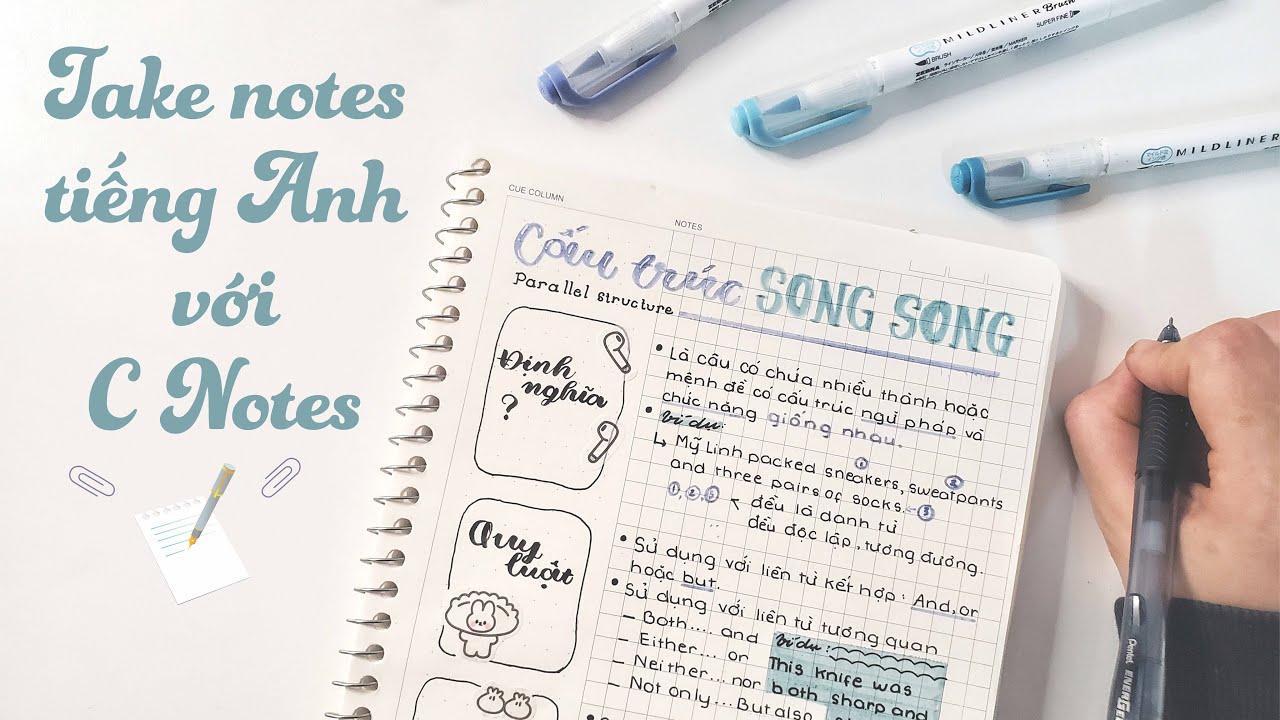 Take notes
tiếng Anh
với
C Notes
MILDLINER Brush
BRUSH
SUPER FINE
ZEBRA
MILDLINER
CUE COLUMN
NOTES
Cấu trúc SONG SONG
Parallel structure
Định
nghĩa
?
• Là câu có chứa nhiều thành hoặc
mệnh đề có cấu trúc ngữ pháp và
chức năng giống nhau.
• Ví dụ:
↳ Mỹ Linh packed sneakers, sweatpants
and three pairs of socks.
①
②
③
1, 2, 3 ↖ đều là danh từ
đều độc lập, tương đương.
Quy
luật
• Sử dụng với liên từ kết hợp: And, or
hoặc but.
• Sử dụng với liên từ tương quan
– Both... and
– Either... or
– Neither... nor
– Not only... But also
Ví dụ:
This knife was
both sharp and
Pentel ENERGEL